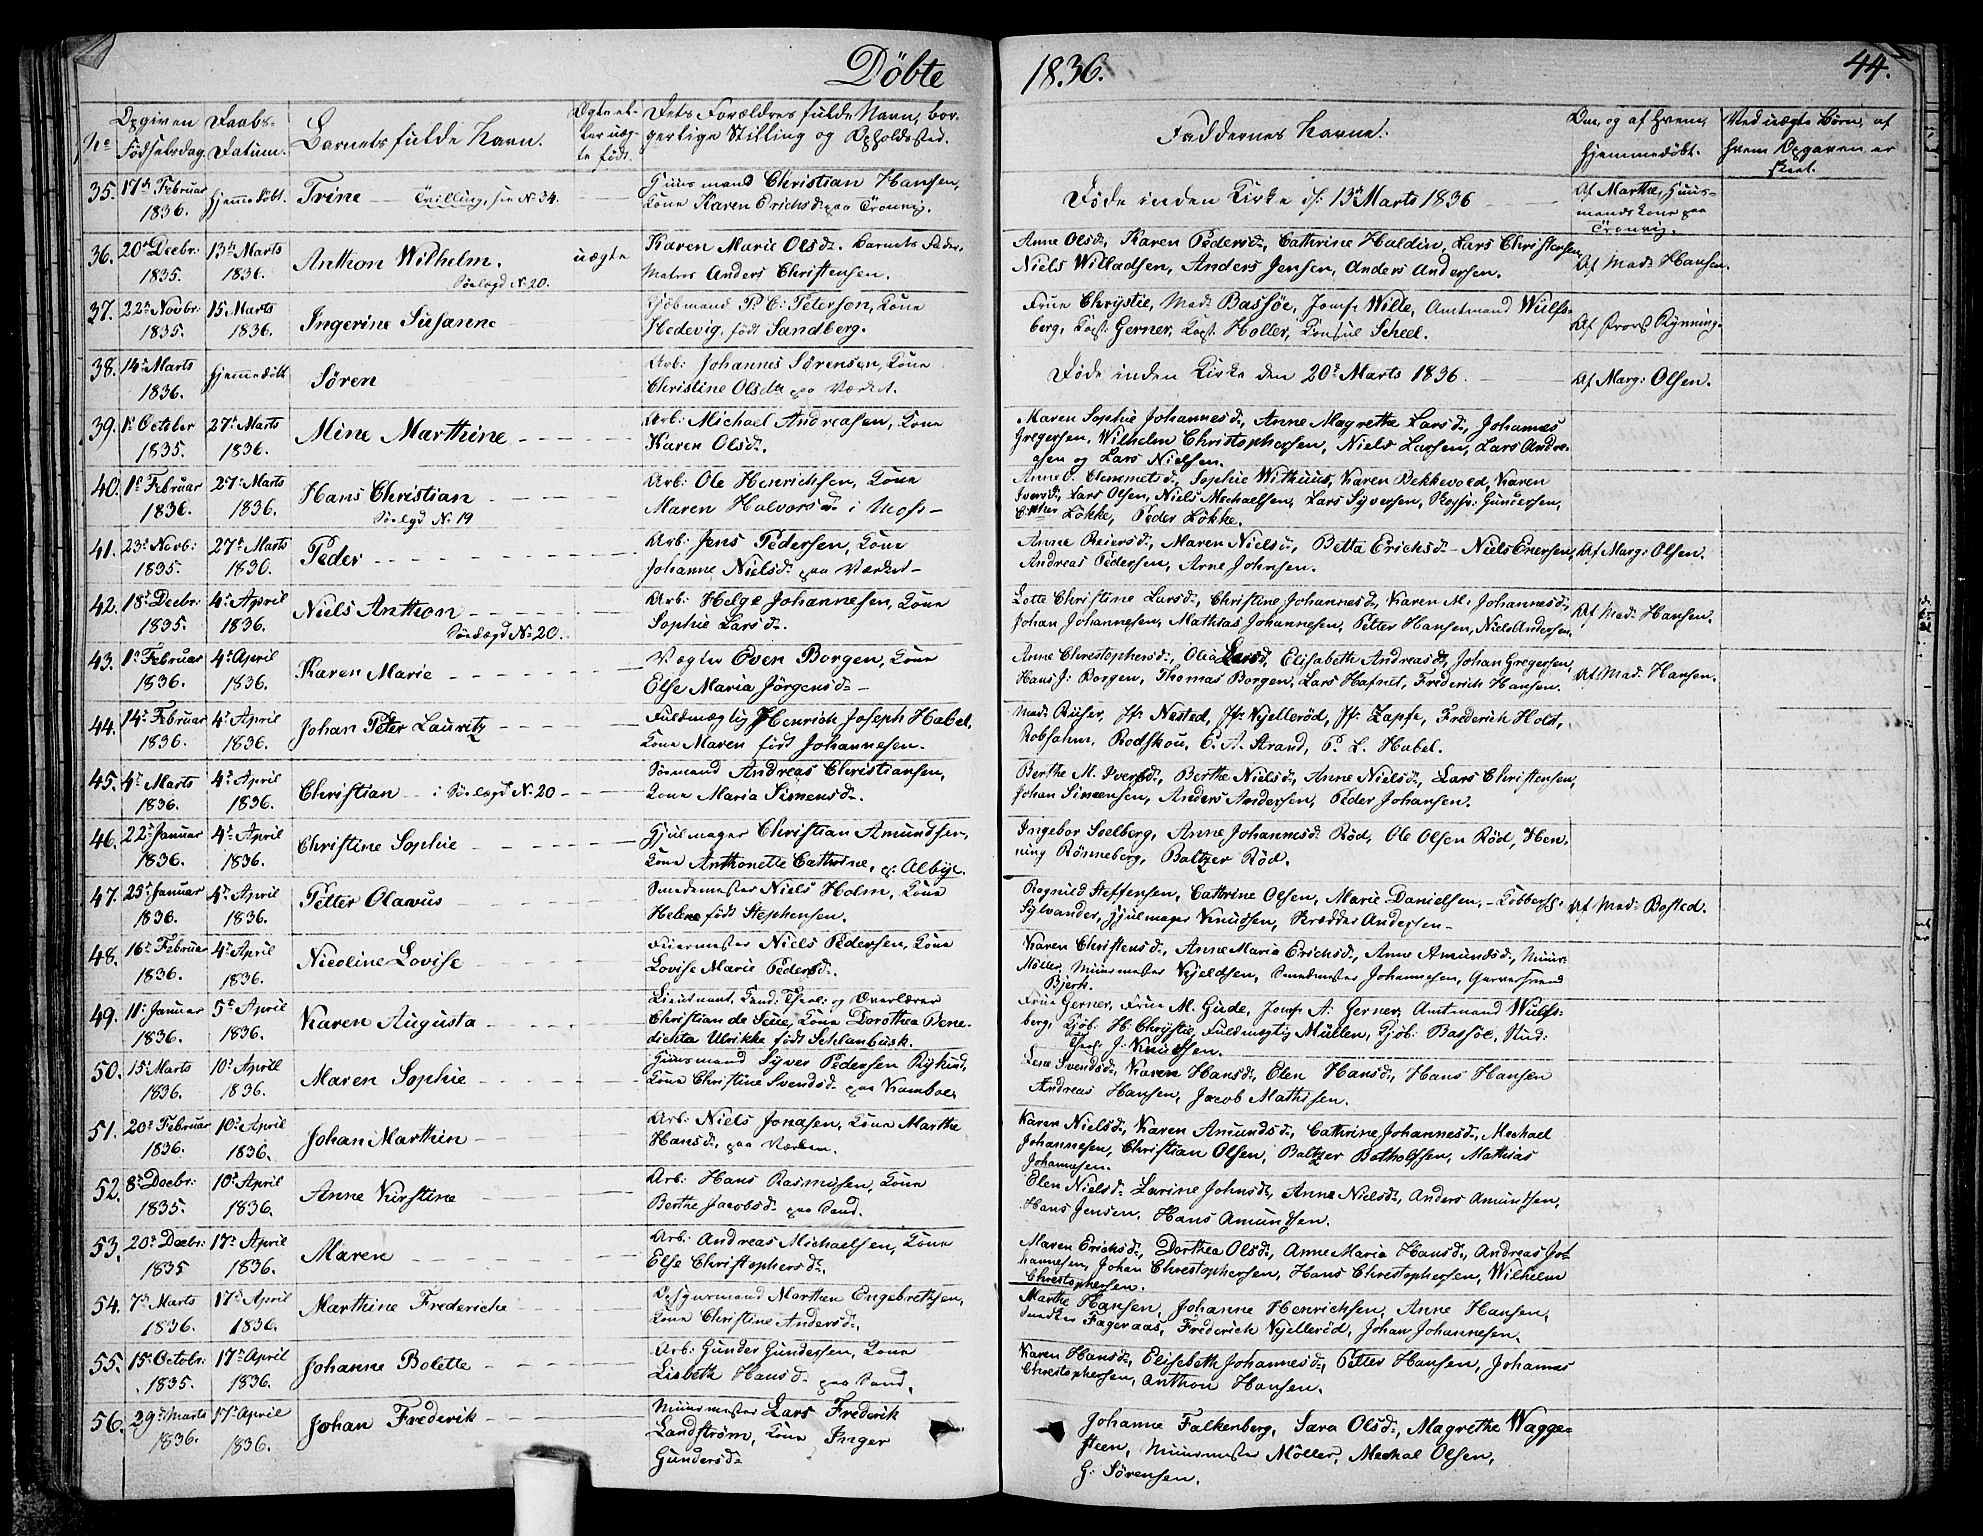 Döbte 1836. 44.
No Opgiven Fødselsdag. Daabs-Datum. Barnets fulde Navn. Ægte eller uægte født. Dets Forældres fulde Navn, borgerlige Stilling og Opholdssted. Faddernes Navne. Om, og af hvem, hjemmedöbt. Ved uægte Börn, af hvem Opgaven er skeet.
35. 17de Februar 1836. hjemmedöbt. Trine — Tvilling, see N. 34. Huusmand Christian Hansen, Kone Karen Erichsd. paa Tronvig. Døde inden Kirke d: 13de Marts 1836 Af Marthe, Huusmands Kone paa Tronvig.
36. 20de Decbr: 1835. 13de Marts 1836. Anthon Wilhelm. Søelægd N. 20. uægte Karen Marie Olsd. Barnets Fader Matros Anders Christensen. Anne Olsd, Karen Pedersd, Cathrine Haldin, Lars Christensen, Niels Willadsen, Anders Jensen, Anders Andersen. Af Mad: Hansen.
37. 22de Novbr: 1835. 15 Marts 1836. Ingerine Susanne Kjöbmand P. C. Peterson, Kone Hedevig, født Sandberg. Frue Chrystie, Mad: Bassöe, Jomf: Wilte, Amtmand Wulfsberg, Capt. Gerner, Capt. Holler, Consul Scheel. Af Provst Rynning.
38. 14de Marts 1836. hjemmedöbt Sören Arb: Johannes Sørensen, Kone Christine Olsdt. paa Værket. Døde inden Kirke den 20de Marts 1836. Af Marg: Olsen.
39. 1te October 1835. 27de Marts 1836. Mine Marthine Arb: Michael Andreasen, Kone Karen Olsd. Maren Sophie Johannesd, Anne Magrethe Larsd, Johannes Gregersen, Wilhelm Christophersen, Niels Larsen, Lars Andreasen og Lars Nielsen.
40. 1te Februar 1836. 27de Marts 1836. Hans Christian Søelægd No. 19 Arb: Ole Henrichsen, Kone Maren Halvorsd. i Moss Anne O. Clemmetsd, Sophie Withuus, Karen Bekkevold, Karen Iversd, Lars Olsen, Niels Mechaelsen, Lars Syversen, Gundersen, Lökke, Peder Lökke.
41. 23de Novb: 1835. 27de Marts 1830. Peder Arb: Jens Pedersen, Kone Johanne Nielsd. paa Værket. Anne Reiersd, Maren Nielsd, Betta Erichsd. Niels Enersen, Andreas Pedersen, Arne Johnsen. Af Marg: Olsen.
42. 18de Decbr: 1835. 4de April 1836. Niels Anthon Søelægd No. 20. Arb: Helge Johannesen, Kone Sophie Larsd. Lotte Christine Larsd, Christine Johannesd, Karen M. Johannesd, Johan Johannesen, Mathias Johannesen, Petter Hansen, Niels Andersen. Af Mad: Hansen.
43. 1te Februar 1836. 4de April 1836. Karen Marie Vægter Even Borgen, Kone Else Maria Jörgensd. Anne Christophersd, Olea Larsd, Elisabeth Andreasd, Johan Gregersen, Hans J. Borgen, Thomas Borgen, Lars Hafnet, Frederich Hansen. Af Mad: Hansen.
44. 14de Februar 1836. 4de April 1836. Johan Peter Lauritz Fuldmægtig Henrich Joseph Habel, Kone Maren født Johannesen. Mad: Ruser, Jfr. Nested, Jfr. Kjelleröd, Jfr. Zapfe, Frederich Holst, Robsahm, Rodskou, C. A. Strand, P. L. Habel.
45. 4de Marts 1836. 4de April 1836. Christian i Søelægd No. 20 Sømand Andreas Christiansen, Kone Maria Simensd. Berthe M. Iversd, Berthe Nielsd, Anne Nielsd, Lars Christensen, Johan Simensen, Anders Andersen, Peder Johansen.
46. 22de Januar 1836. 4de April 1836. Christine Sophie Hjulmager Christian Amundsen, Kone Anthonette Cathrine, p. Albye. Ingebor Soelberg, Anne Johannesd. Röd, Ole Olsen Röd, Henning Rönneberg, Baltzer Röd.
47. 25de Januar 1836. 4de April 1836. Petter Olavus Smedemester Niels Holm, Kone Helene født Stephensen. Ragnild Steffensen, Cathrine Olsen, Marie Danielsen, Kobbersl: Sylvander, Hjulmager Knudsen, Skrædder Andersen. Af Mad: Bosted.
48. 16de Februar 1836. 4de April 1836. Nicoline Lovise Feiermester Niels Pedersen, Kone Lovise Marie Pedersd. Karen Christensd, Anne Maria Erichsd, Anne Amundsd, Muur: Möller, Muurmester Kjeldsen, Smedmester Johannesen, Garversvend Bjerk.
49. 11te Januar 1836. 5te April 1836. Karen Augusta Lieutnant, Cand: Theol: og Overlærer Christian de Seue, Kone Dorothea Benedicta Ulrikke født Schlanbusk. Frue Gerner, Frue M. Gude, Jomf. A. Gerner, Amtmand Wulfsberg, Kjöb. H. Chrystie, Fuldmægtig Müllen, Kjöb: Bassöe, Stud: Theol. J. Knudsen.
50. 15de Marts 1836. 10de April 1836. Maren Sophie Huusmand Syver Pedersen Rykind, Kone Christine Svendsd. paa Kamboe, Lene Svendsd, Karen Hansd, Elen Hansd, Hans Hansen Andreas Hansen, Jacob Mathisen.
51. 20de Februar 1836. 10de April 1836. Johan Marthin Arb: Niels Jonasen, Kone Marthe Hansd, paa Værket. Karen Nielsd, Karen Amundsd, Cathrine Johannesd, Mechael Johannesen, Christian Olsen, Baltzer Botholfsen, Mathias Johannesen.
52. 8de Decbr: 1835. 10de April 1836. Anne Kirstine Arb: Hans Rasmusen, Kone Berthe Jacobsd. paa Sand. Elen Nielsd. Larine Johnsd, Anne Nielsd, Anders Amundsen, Hans Jensen, Hans Amundsen.
53. 20de Decbr: 1835 17de April 1836. Maren Arb: Andreas Michaelsen, Kone Else Christophersd. Maren Erichsd, Dorthea Olsd, Anne Maria Hansd, Andreas Johannesen, Johan Chrestophersen, Hans Chrestophersen, Wilhelm Chrestophersen.
54. 7de Marts 1836. 17de April 1836. Marthine Frederiche Opsynsmand Morthen Engebrethsen, Kone Christine Andersd. Marthe Hansen, Johanne Henrichsen, Anne Hansen, Fageraas, Frederich Kjelleröd, Johan Johannesen.
55. 15de Octobr: 1835. 17de April 1836. Johanne Bolette Arb: Gunder Gundersen, Kone Lisbeth Hansd. paa Sand, Karen Hansd, Elisebeth Johannesd, Petter Hansen, Johannes Chrestophersen, Anthon Hansen.
56. 29de Marts 1836. 17de April 1836. Johan Frederik Muurmester Lars Frederik Landström, Kone Inger Gundersd. Johanne Falkenberg, Sara Olsd, Magrethe Waggesteen, Muurmester Möller, Mechal Olsen, G. Sörensen.